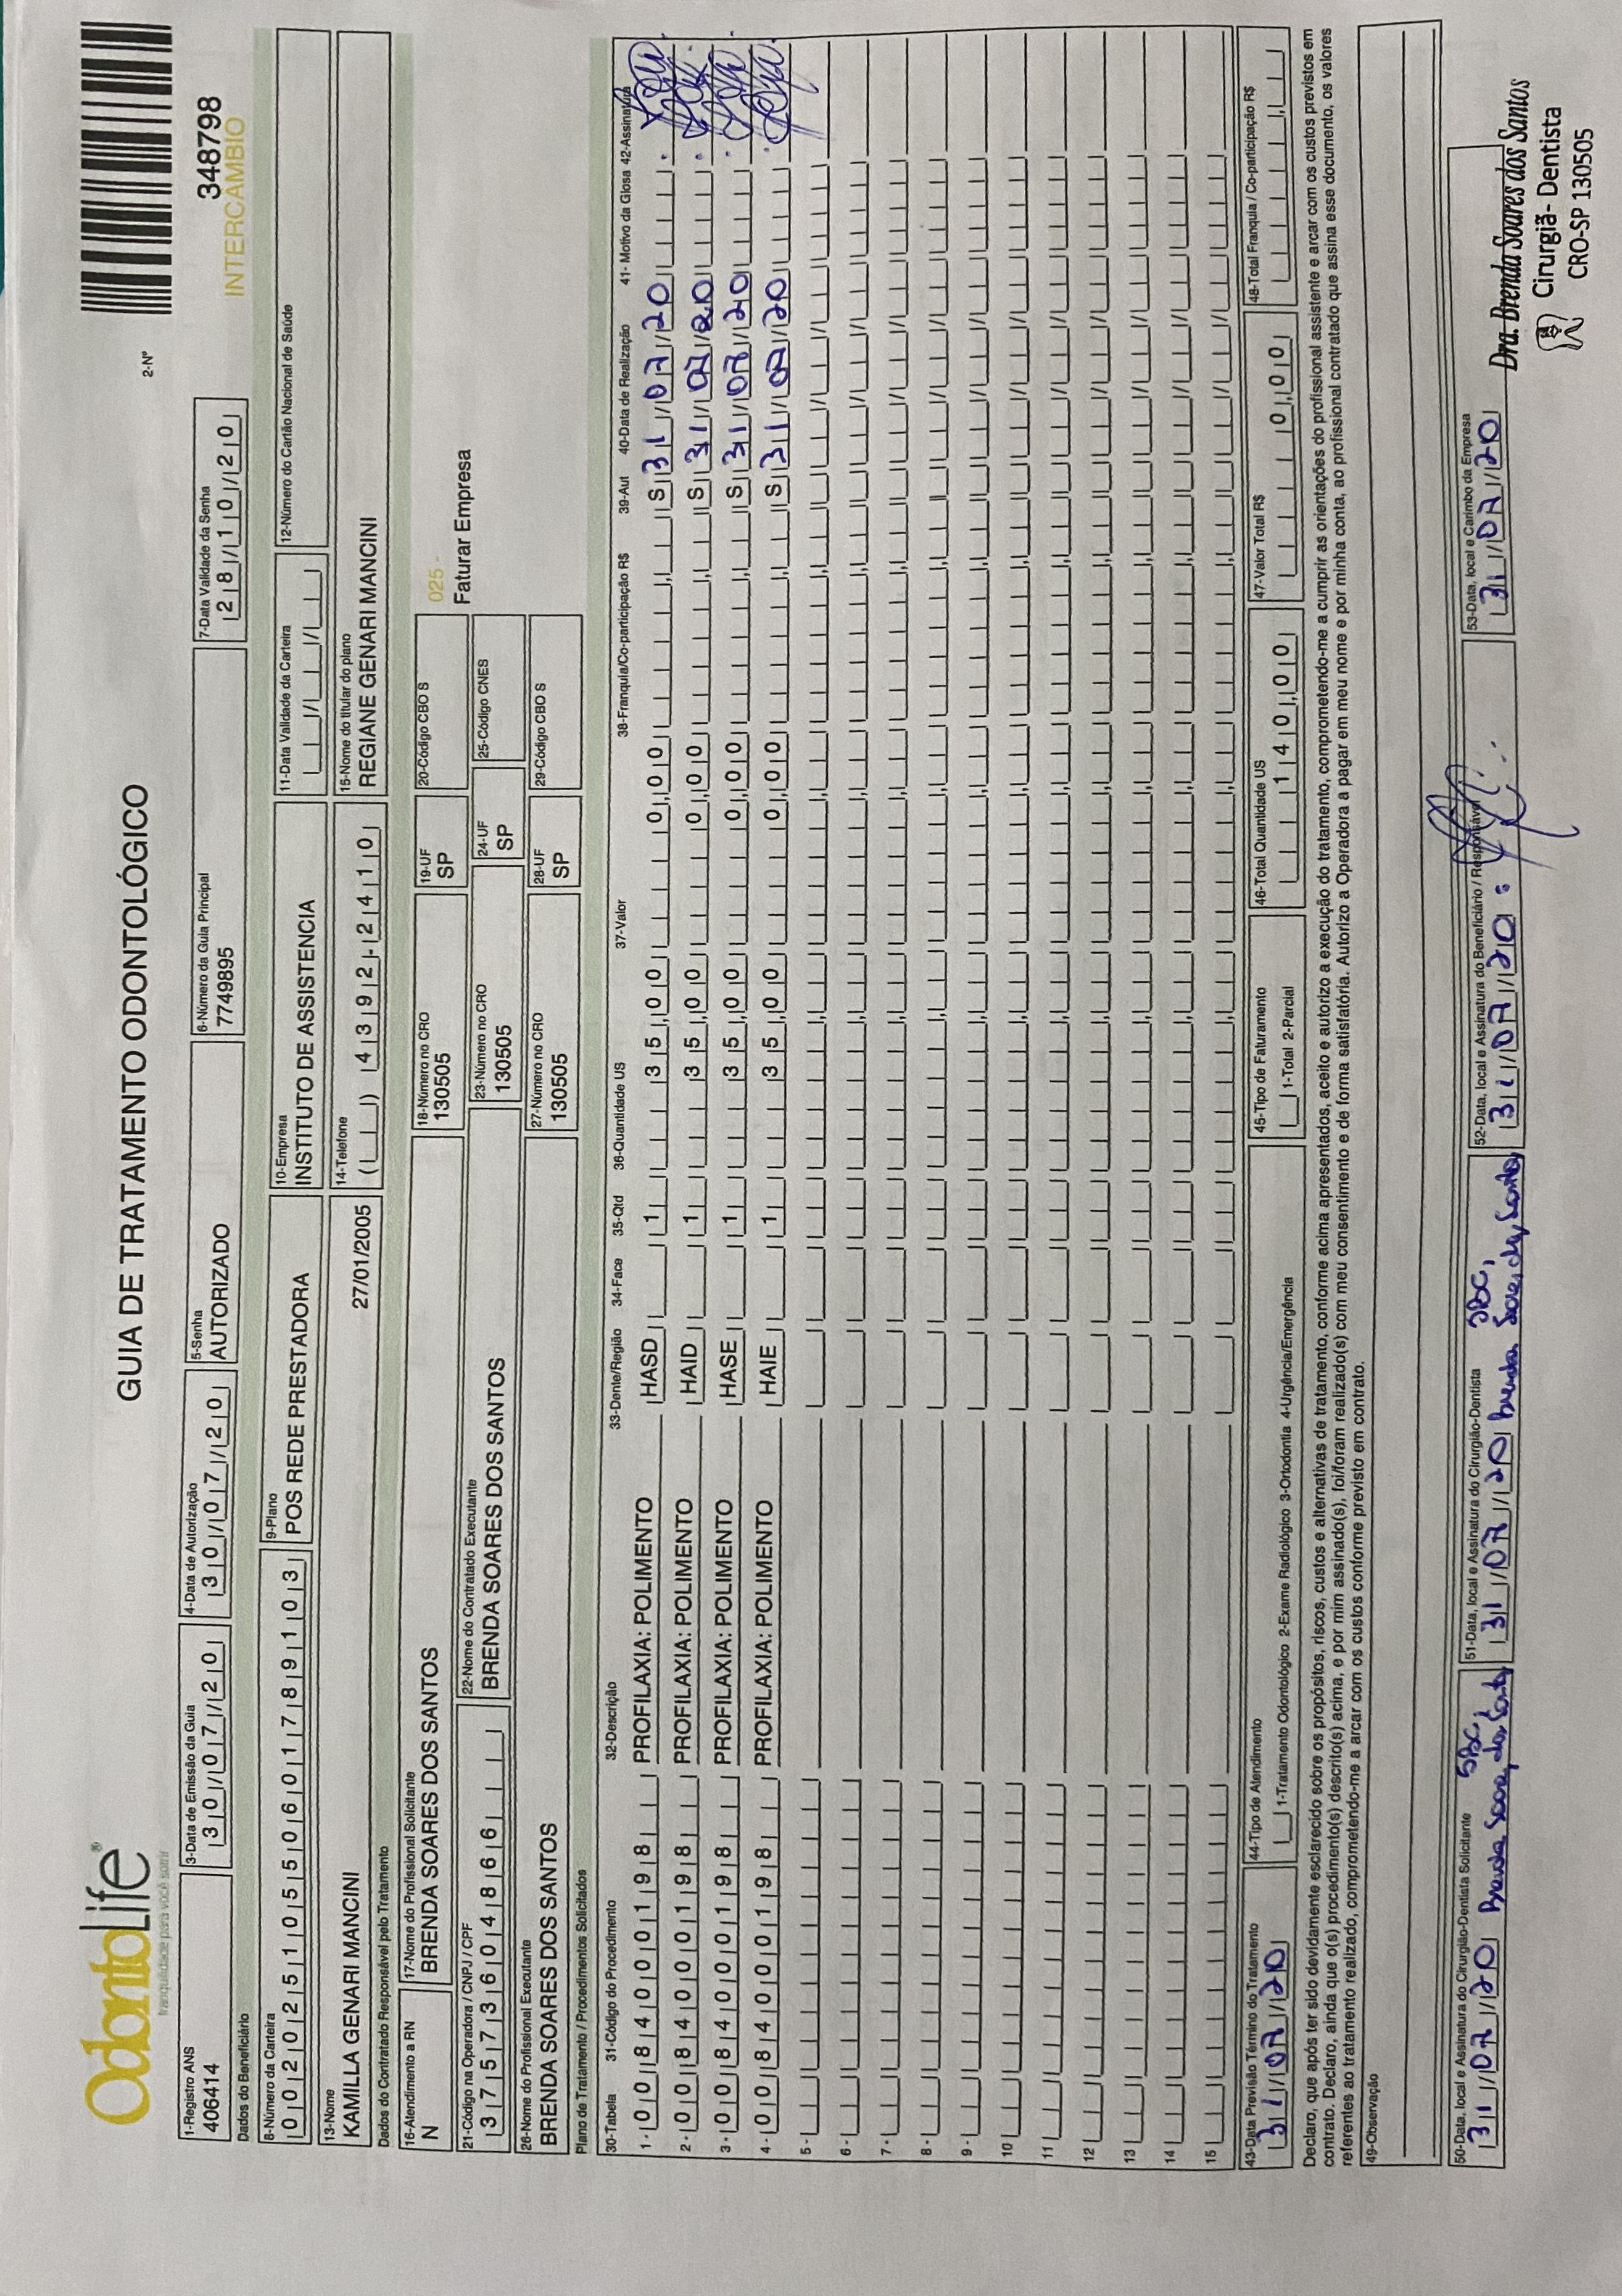 OdontoLife®
tranquilidade para você sorrir
GUIA DE TRATAMENTO ODONTOLÓGICO
2-Nº
3487798
INTERCAMBIO
1-Registro ANS
406414
3-Data de Emissão da Guia
30/07/20
4-Data de Autorização
30/07/20
5-Senha
AUTORIZADO
6-Número da Guia Principal
7749895
7-Data Validade da Senha
28/10/20
Dados do Beneficiário
8-Número da Carteira
00202510550601789103
9-Plano
POS REDE PRESTADORA
10-Empresa
INSTITUTO DE ASSISTENCIA
11-Data Validade da Carteira
12-Número do Cartão Nacional de Saúde
13-Nome
KAMILLA GENARI MANCINI
27/01/2005
14-Telefone
( ) 4392-2410
15-Nome do titular do plano
REGIANE GENARI MANCINI
Dados do Contratado Responsável pelo Tratamento
16-Atendimento a RN
N
17-Nome do Profissional Solicitante
BRENDA SOARES DOS SANTOS
18-Número no CRO
130505
19-UF
SP
20-Código CBO S
025 -
Faturar Empresa
21-Código na Operadora / CNPJ / CPF
37573604866
22-Nome do Contratado Executante
BRENDA SOARES DOS SANTOS
23-Número no CRO
130505
24-UF
SP
25-Código CNES
26-Nome do Profissional Executante
BRENDA SOARES DOS SANTOS
27-Número no CRO
130505
28-UF
SP
29-Código CBO S
Plano de Tratamento / Procedimentos Solicitados
30-Tabela 31-Código do Procedimento 32-Descrição 33-Dente/Região 34-Face 35-Qtd 36-Quantidade US 37-Valor 38-Franquia/Co-participação R$ 39-Aut 40-Data de Realização 41- Motivo da Glosa 42-Assinatura
1 - 00 84000198 PROFILAXIA: POLIMENTO HASD 1 35,00 0,00 S 31/07/20
2 - 00 84000198 PROFILAXIA: POLIMENTO HAID 1 35,00 0,00 S 31/07/20
3 - 00 84000198 PROFILAXIA: POLIMENTO HASE 1 35,00 0,00 S 31/07/20
4 - 00 84000198 PROFILAXIA: POLIMENTO HAIE 1 35,00 0,00 S 31/07/20
5 -
6 -
7 -
8 -
9 -
10
11
12
13
14
15
43-Data Previsão Término do Tratamento
31/07/20
44-Tipo de Atendimento
1-Tratamento Odontológico 2-Exame Radiológico 3-Ortodontia 4-Urgência/Emergência
45-Tipo de Faturamento
1-Total 2-Parcial
46-Total Quantidade US
140,00
47-Valor Total R$
0,00
48-Total Franquia / Co-participação R$
Declaro, que após ter sido devidamente esclarecido sobre os propósitos, riscos, custos e alternativas de tratamento, conforme acima apresentados, aceito e autorizo a execução do tratamento, comprometendo-me a cumprir as orientações do profissional assistente e arcar com os custos previstos em
contrato. Declaro, ainda que o(s) procedimento(s) descrito(s) acima, e por mim assinado(s), foi/foram realizado(s) com meu consentimento e de forma satisfatória. Autorizo a Operadora a pagar em meu nome e por minha conta, ao profissional contratado que assina esse documento, os valores
referentes ao tratamento realizado, comprometendo-me a arcar com os custos conforme previsto em contrato.
49-Observação
50-Data, local e Assinatura do Cirurgião-Dentista Solicitante
31/07/20 SBC, Brenda Soares dos Santos
51-Data, local e Assinatura do Cirurgião-Dentista
31/07/20 SBC, Brenda Soares dos Santos
52-Data, local e Assinatura do Beneficiário / Responsável
31/07/20
53-Data, local e Carimbo da Empresa
31/07/20
Dra. Brenda Soares dos Santos
Cirurgiã- Dentista
CRO-SP 130505